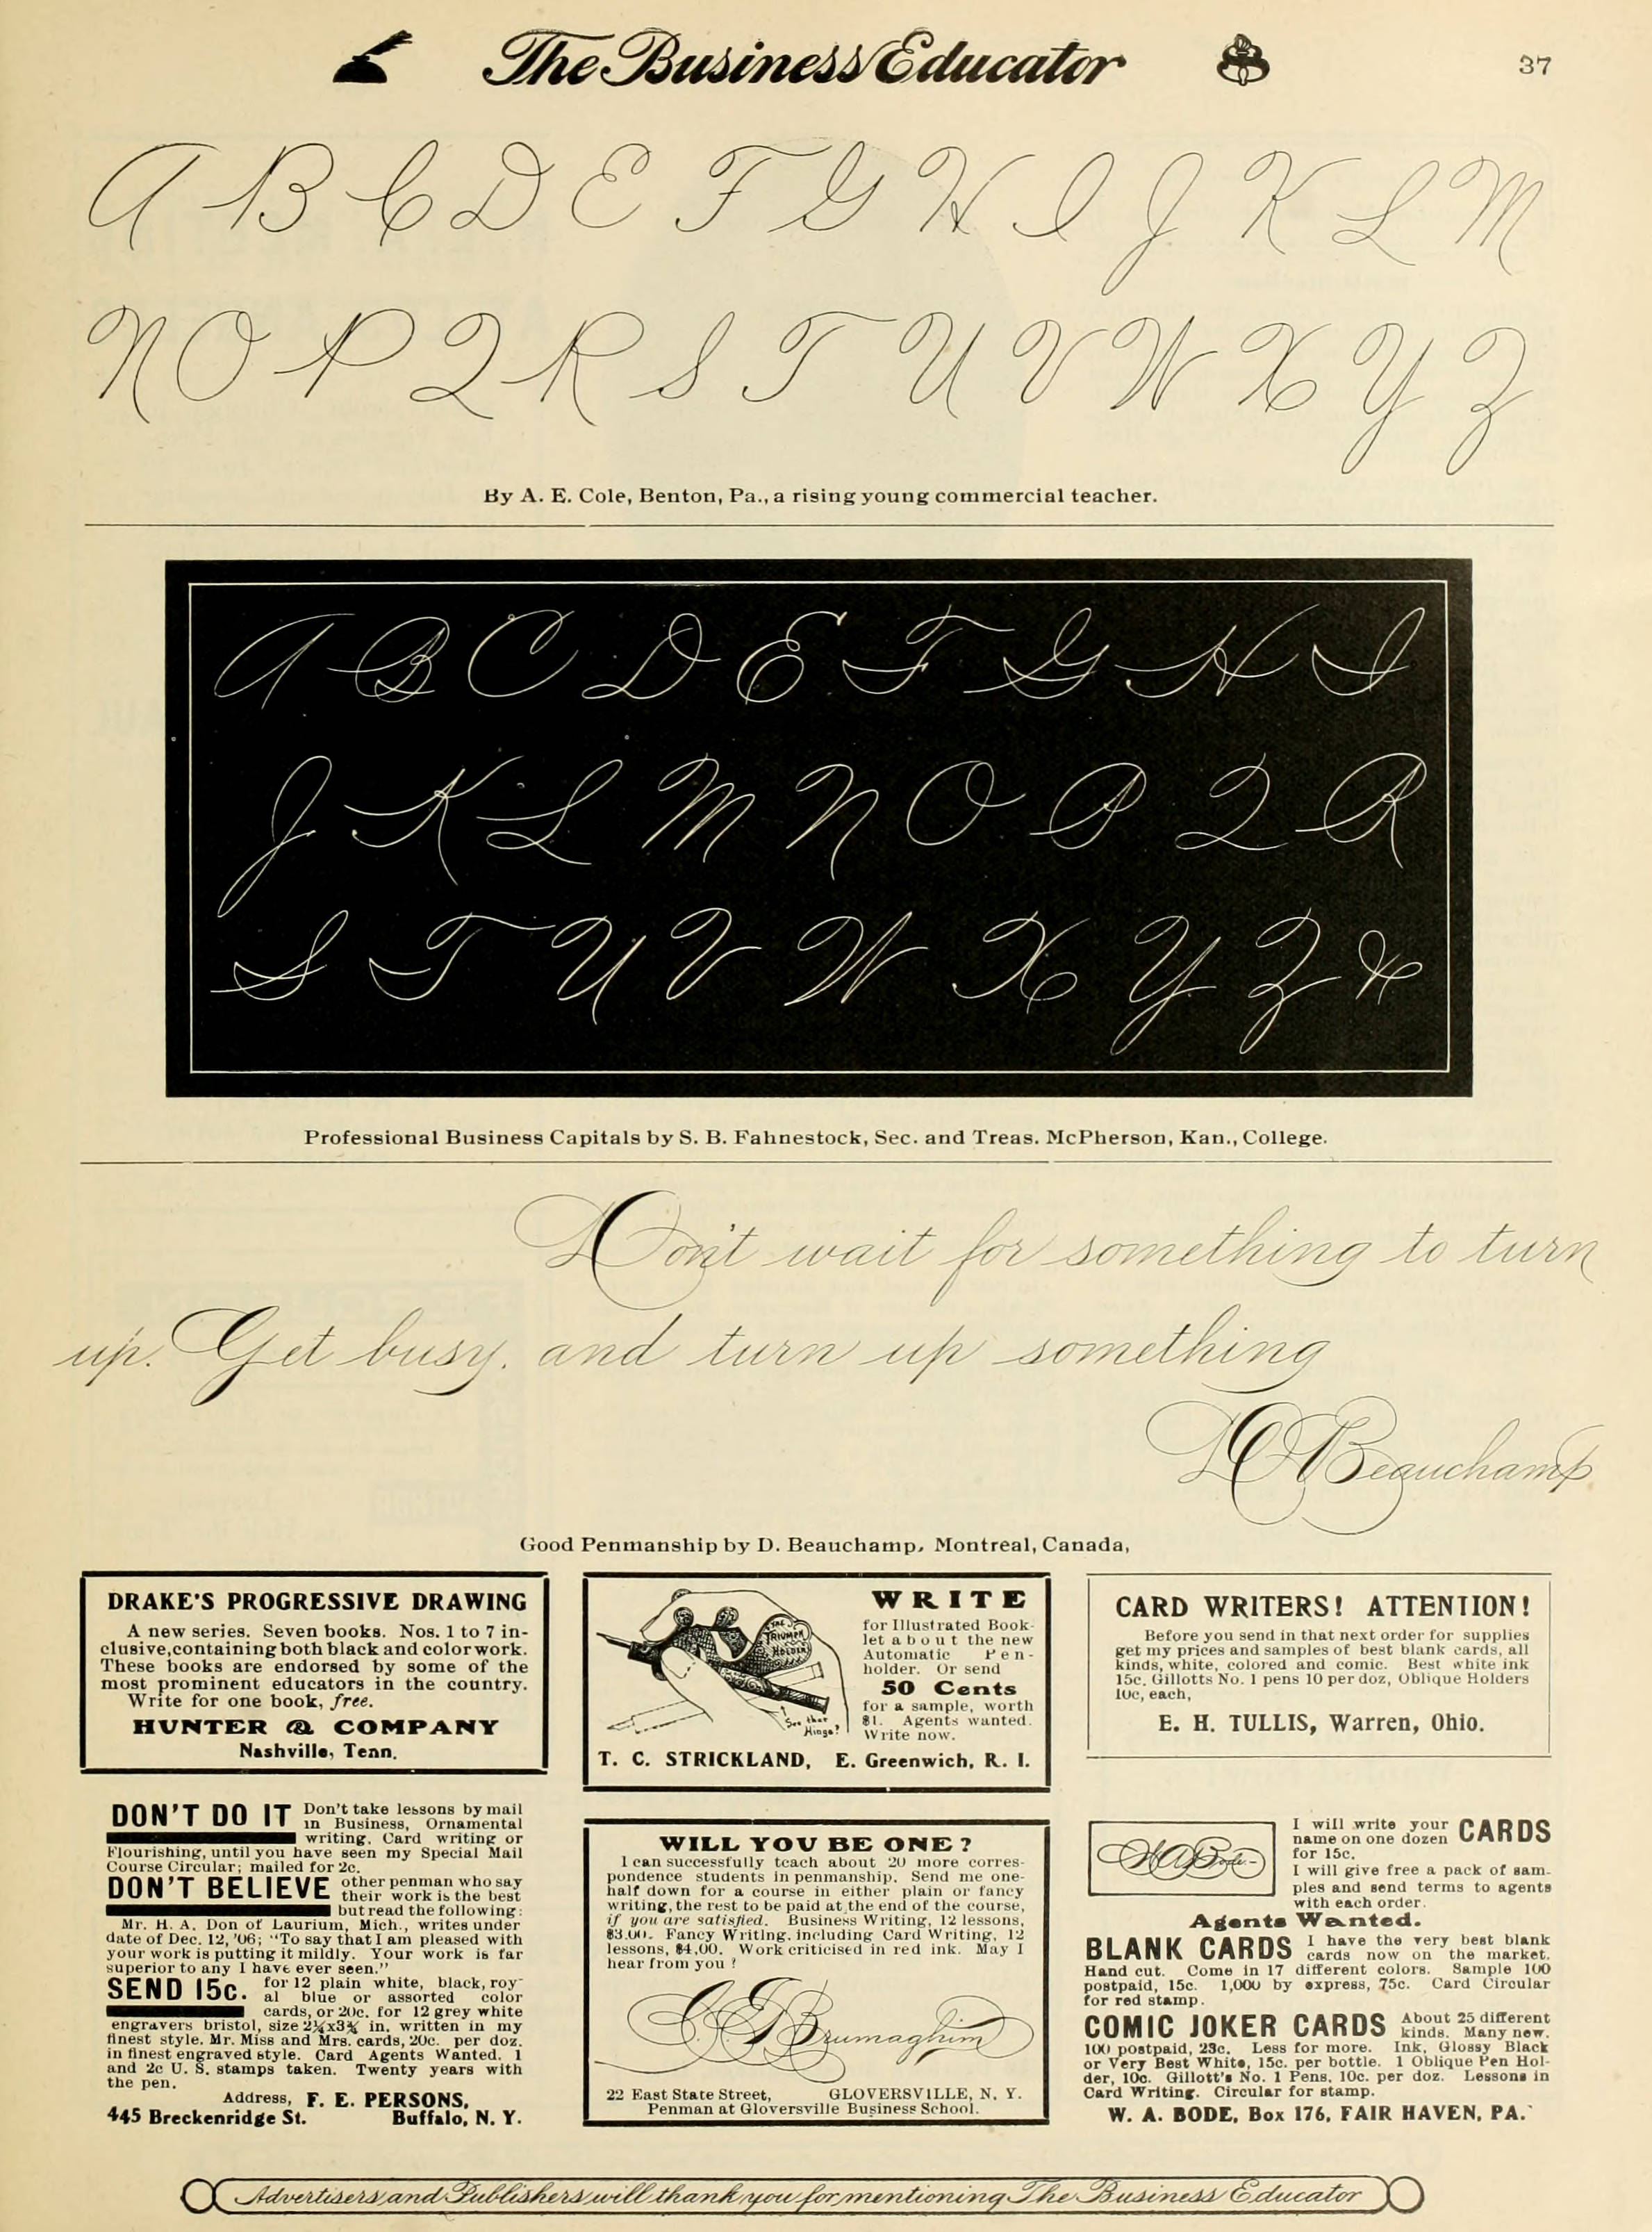 The Business Educator
37
A B C D E F G H I J K L M
N O P Q R S T U V W X Y Z
By A. E. Cole, Benton, Pa., a rising young commercial teacher.
A B C D E F G H I
J K L M N O P Q R
S T U V W X Y Z &
Professional Business Capitals by S. B. Fahnestock, Sec. and Treas. McPherson, Kan., College.
Don't wait for something to turn
up. Get busy, and turn up something
D Beauchamp
Good Penmanship by D. Beauchamp, Montreal, Canada,
DRAKE'S PROGRESSIVE DRAWING
A new series. Seven books. Nos. 1 to 7 in-
clusive, containing both black and color work.
These books are endorsed by some of the
most prominent educators in the country.
Write for one book, free.
HUNTER & COMPANY
Nashville, Tenn.
THE
TRIUMPH
HOLDER
See that
Hinge?
WRITE
for Illustrated Book-
let about the new
Automatic Pen-
holder. Or send
50 Cents
for a sample, worth
$1. Agents wanted.
Write now.
T. C. STRICKLAND, E. Greenwich, R. I.
CARD WRITERS! ATTENTION!
Before you send in that next order for supplies
get my prices and samples of best blank cards, all
kinds, white, colored and comic. Best white ink
15c. Gillotts No. 1 pens 10 per doz, Oblique Holders
10c, each,
E. H. TULLIS, Warren, Ohio.
DON'T DO IT Don't take lessons by mail
in Business, Ornamental
writing. Card writing or
Flourishing, until you have seen my Special Mail
Course Circular; mailed for 2c.
DON'T BELIEVE other penman who say
their work is the best
but read the following:
Mr. H. A. Don of Laurium, Mich., writes under
date of Dec. 12, '06; "To say that I am pleased with
your work is putting it mildly. Your work is far
superior to any I have ever seen."
SEND 15c. for 12 plain white, black, roy-
al blue or assorted color
cards, or 20c. for 12 grey white
engravers bristol, size 2¼x3¾ in. written in my
finest style. Mr. Miss and Mrs. cards, 20c. per doz.
in finest engraved style. Card Agents Wanted. 1
and 2c U. S. stamps taken. Twenty years with
the pen.
Address, F. E. PERSONS,
445 Breckenridge St. Buffalo, N. Y.
WILL YOU BE ONE?
I can successfully teach about 20 more corres-
pondence students in penmanship. Send me one-
half down for a course in either plain or fancy
writing, the rest to be paid at the end of the course,
if you are satisfied. Business Writing, 12 lessons,
$3.00. Fancy Writing. including Card Writing, 12
lessons, $4,00. Work criticised in red ink. May I
hear from you?
Brumaghim
22 East State Street, GLOVERSVILLE, N. Y.
Penman at Gloversville Business School.
W A Bode
I will write your
name on one dozen CARDS
for 15c.
I will give free a pack of sam-
ples and send terms to agents
with each order.
Agents Wanted.
BLANK CARDS I have the very best blank
cards now on the market.
Hand cut. Come in 17 different colors. Sample 100
postpaid, 15c. 1,000 by express, 75c. Card Circular
for red stamp.
COMIC JOKER CARDS About 25 different
kinds. Many new.
100 postpaid, 23c. Less for more. Ink, Glossy Black
or Very Best White, 15c. per bottle. 1 Oblique Pen Hol-
der, 10c. Gillott's No. 1 Pens, 10c. per doz. Lessons in
Card Writing. Circular for stamp.
W. A. BODE, Box 176, FAIR HAVEN, PA.
Advertisers and Publishers will thank you for mentioning The Business Educator